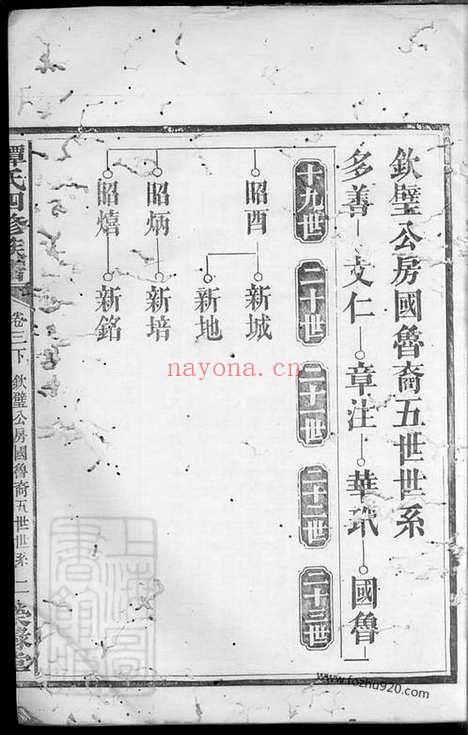 欽璧公房國魯裔五世世系
多善 文仁 章注 華珖 國魯
十九世 二十世 二十一世 二十二世 二十三世
昭酉 新城
新地
昭炳 新培
昭熺 新銘
譚氏四修族譜
卷三下 欽璧公房國魯裔五世世系 二
nayona.cn
www.fozhu920.com